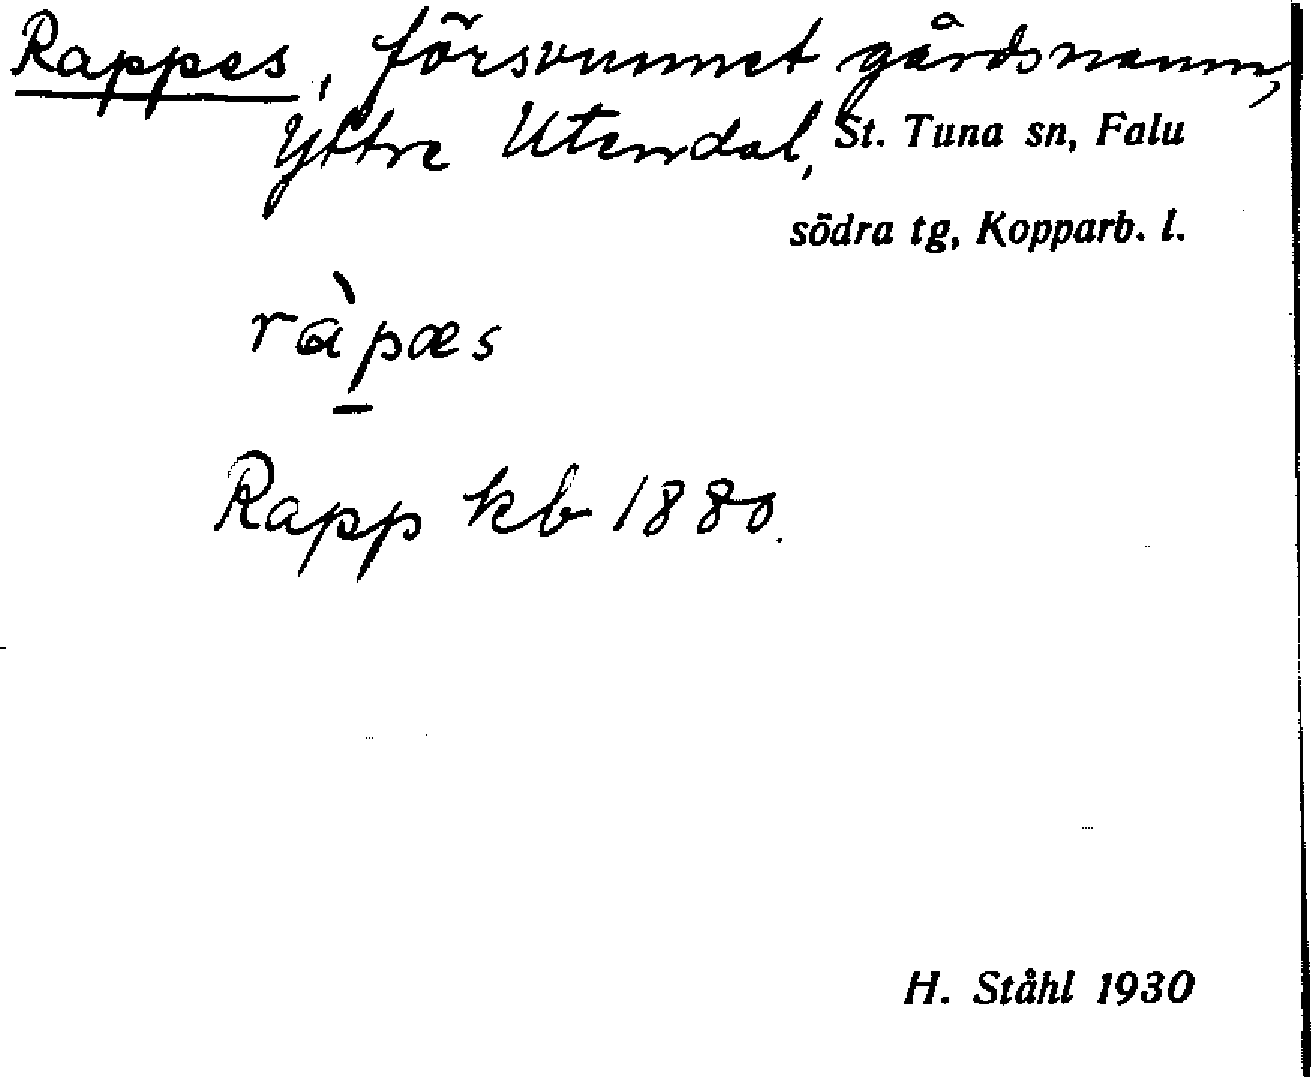 Rappes, försvunnet gårdsnamn,
Yttre Utendal, St. Tuna sn, Falu
södra tg, Kopparb. l.
ràpæs
Rapp kb 1880.
H. Ståhl 1930